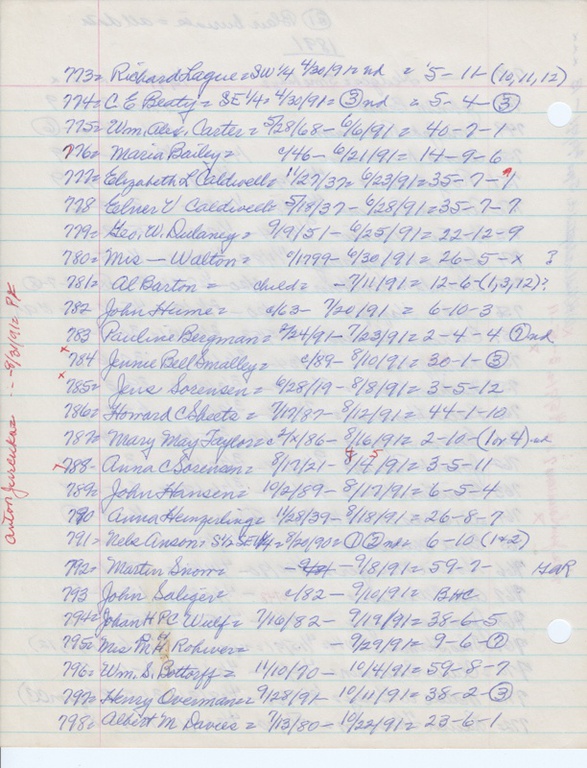 773= Richard Lague = SW 1/4 4/30/91= nd = 5-11-(10,11,12)
774= C E Beaty = SE 1/4= 4/30/91= ③ nd = 5-4-③
775= Wm. Alex. Carter= 5/28/68- 6/6/91= 40-7-1
776= Maria Bailey= c/46- 6/21/91= 14-9-6
777= Elizabeth L Caldwell= 11/27/37= 6/23/91= 35-7-1
778 Elener V Caldwell= 5/18/37- 6/28/91= 35-7-7
779= Geo. W. Dulaney= 9/9/51- 6/25/91= 22-12-9
780= Mis — Walton= c/1799- 6/30/91= 26-5-x ?
781= Al Barton= child= -7/11/91= 12-6-(1,3,12)?
782 John Hume= c/63- 7/20/91= 6-10-3
783 Pauline Bergman= 2/24/91- 7/23/91= 2-4-4 ① nd
x 784 Jennie Bell Smalley= c/89- 8/10/91= 30-1-③
x 785= Jens Sorensen= 6/28/19- 8/8/91= 3-5-12
786= Howard C Sheets= 7/17/87- 8/12/91= 44-1-10
787= Mary May Taylor= c 2/x/86- 8/16/91= 2-10-(1 or 4) nd
788- Anna C Sorensen= 8/17/21- 8/4/91= 3-5-11
789= John Hansen= 10/2/89- 8/17/91= 6-5-4
790 Anna Henzerling= 11/28/39- 8/18/91= 26-8-7
791= Nels Anson= S 1/2 SE 1/4= 8/20/90= ① ② nd= 6-10 (1+2)
792= Martin Snow= - 9/8/91= 59-7- GAR
793 John Saliger= c/82- 9/10/91= BHC
794= Johan H P C Wulf= 7/16/82- 9/19/91= 38-6-5
795= Mis M H Rohwer= - 9/29/91= 9-6-⑦
796= Wm. S. Bottorff= 11/10/70- 10/4/91= 59-8-7
797= Henry Overman= 9/28/91- 10/11/91= 38-2-③
798= Albert M Davies= 7/13/80- 10/22/91= 23-6-1